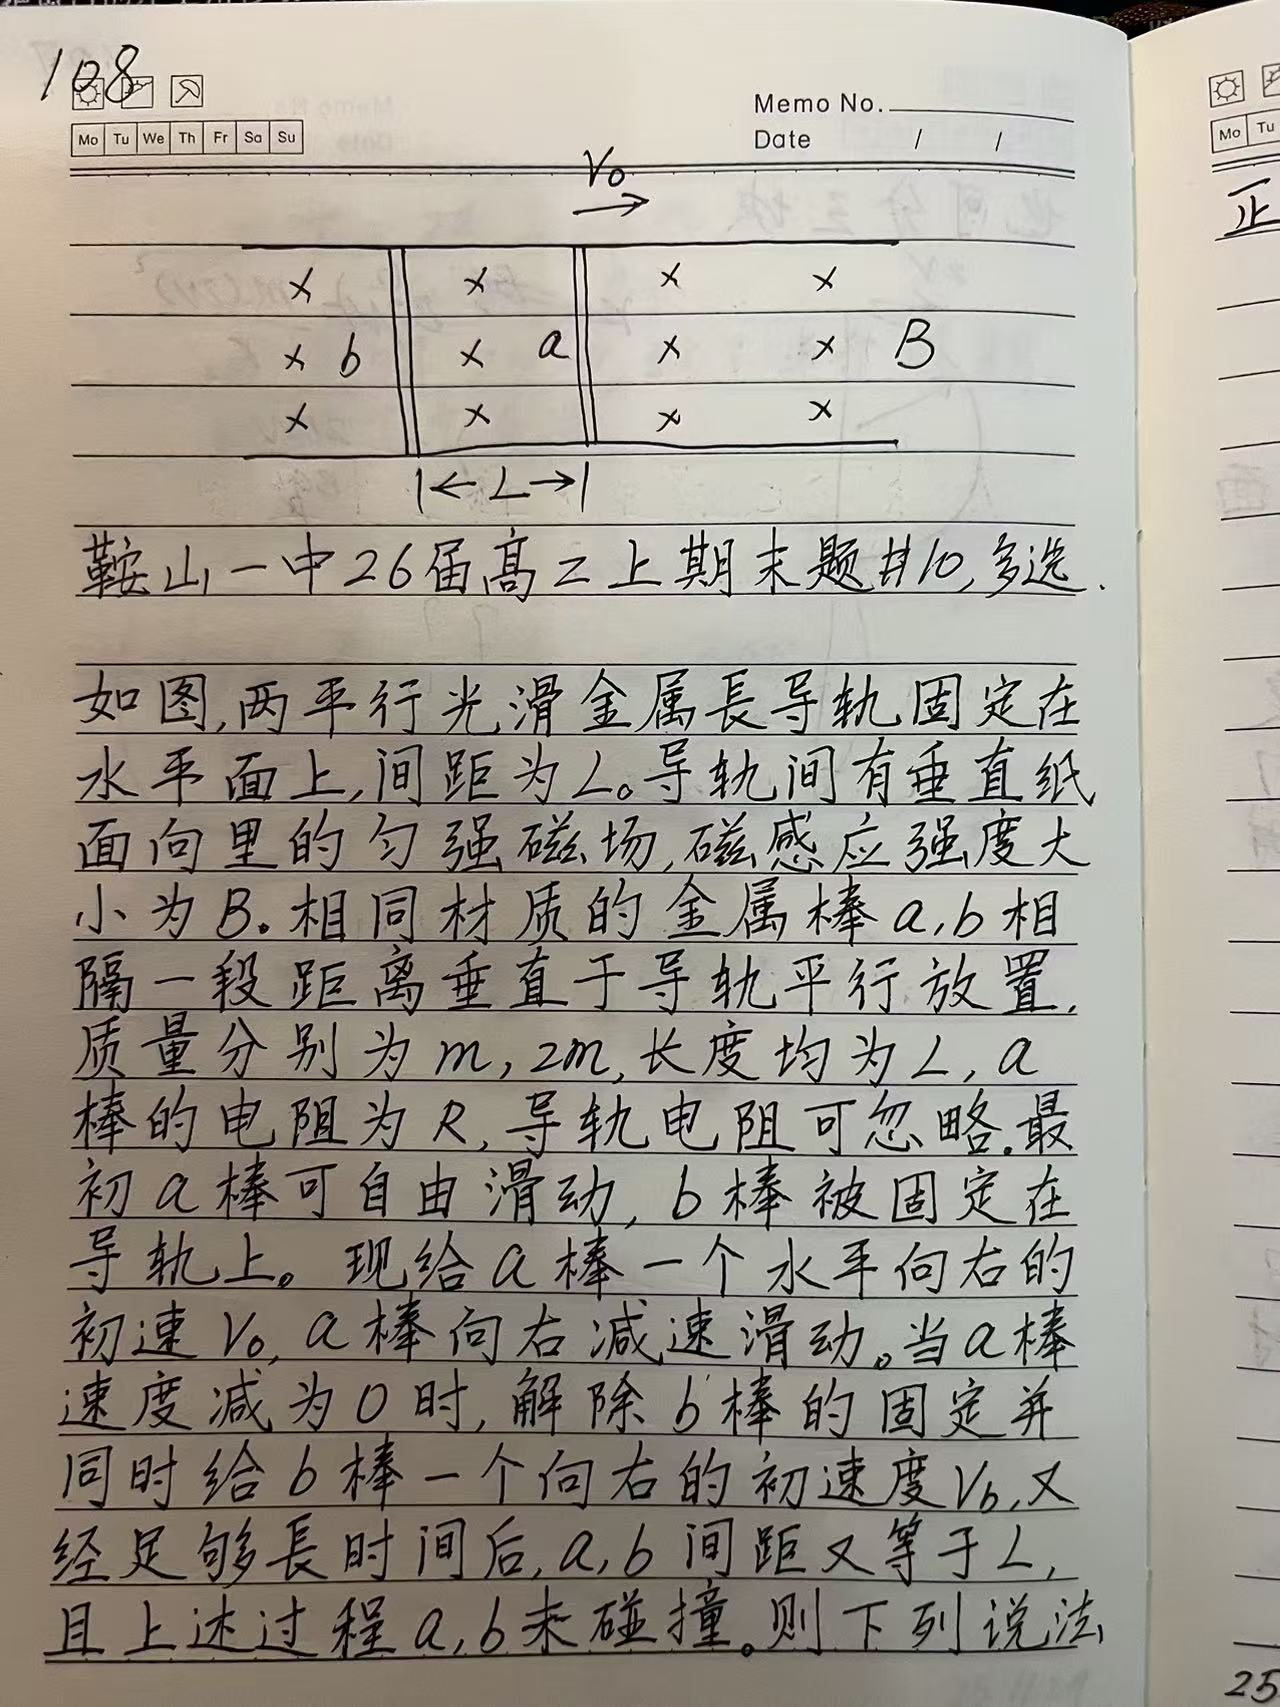 108
Memo No.
Mo Tu We Th Fr Sa Su
Date / /
V₀
× × × ×
× b × a × × B
× × × ×
|← L →|
鞍山一中26届高二上期末题#10,多选.
如图,两平行光滑金属長导轨固定在
水平面上,间距为L。导轨间有垂直纸
面向里的匀强磁场,磁感应强度大
小为B。相同材质的金属棒a,b相
隔一段距离垂直于导轨平行放置,
质量分别为m,2m,长度均为L,a
棒的电阻为R,导轨电阻可忽略.最
初a棒可自由滑动,b棒被固定在
导轨上。现给a棒一个水平向右的
初速V₀,a棒向右减速滑动。当a棒
速度减为0时,解除b棒的固定并
同时给b棒一个向右的初速度V_b,又
经足够長时间后,a,b间距又等于L,
且上述过程a,b未碰撞。则下列说法
Mo Tu
正
25